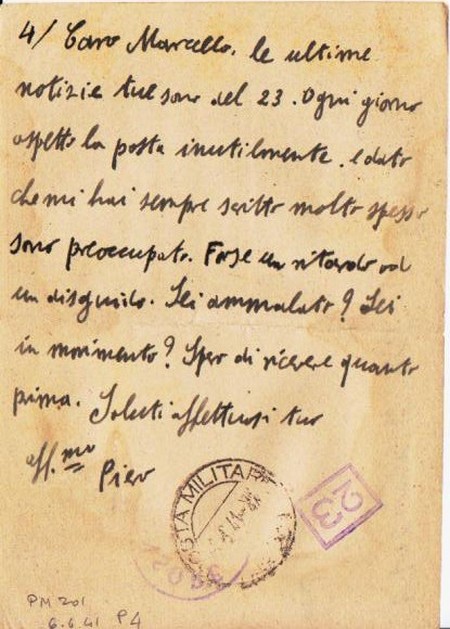 4/ Caro Marcello, le ultime
notizie tue sono del 23. Ogni giorno
aspetto la posta inutilmente, e dato
che mi hai sempre scritto molto spesso
sono preoccupato. Forse un ritardo od
un disguido. Sei ammalato? Sei
in movimento? Spero di ricevere quanto
prima. Saluti affettuosi tuo
aff.mo Piero
POSTA MILITARE
23
PM 201
6.6.41 P4